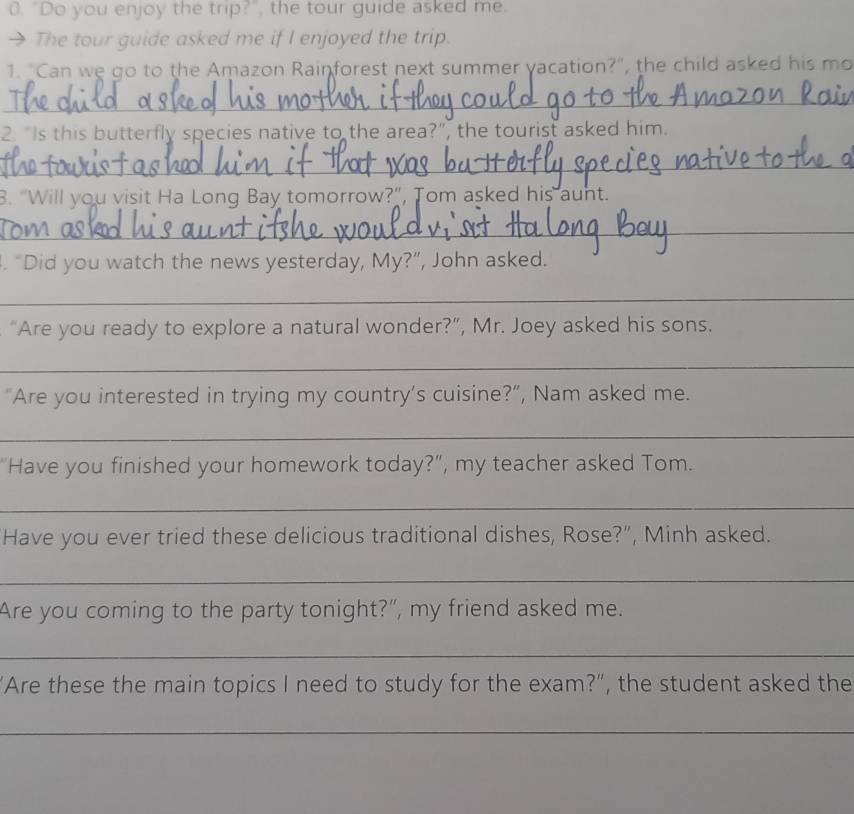 0. "Do you enjoy the trip?", the tour guide asked me.
→ The tour guide asked me if I enjoyed the trip.
1. "Can we go to the Amazon Rainforest next summer vacation?", the child asked his mo
The child asked his mother if they could go to the Amazon Rain
2. "Is this butterfly species native to the area?", the tourist asked him.
the tourist asked him if that was butterfly species native to the a
3. "Will you visit Ha Long Bay tomorrow?", Tom asked his aunt.
Tom asked his aunt if she would visit Ha long Bay
. "Did you watch the news yesterday, My?", John asked.
"Are you ready to explore a natural wonder?", Mr. Joey asked his sons.
"Are you interested in trying my country's cuisine?", Nam asked me.
"Have you finished your homework today?", my teacher asked Tom.
Have you ever tried these delicious traditional dishes, Rose?", Minh asked.
Are you coming to the party tonight?", my friend asked me.
"Are these the main topics I need to study for the exam?", the student asked the